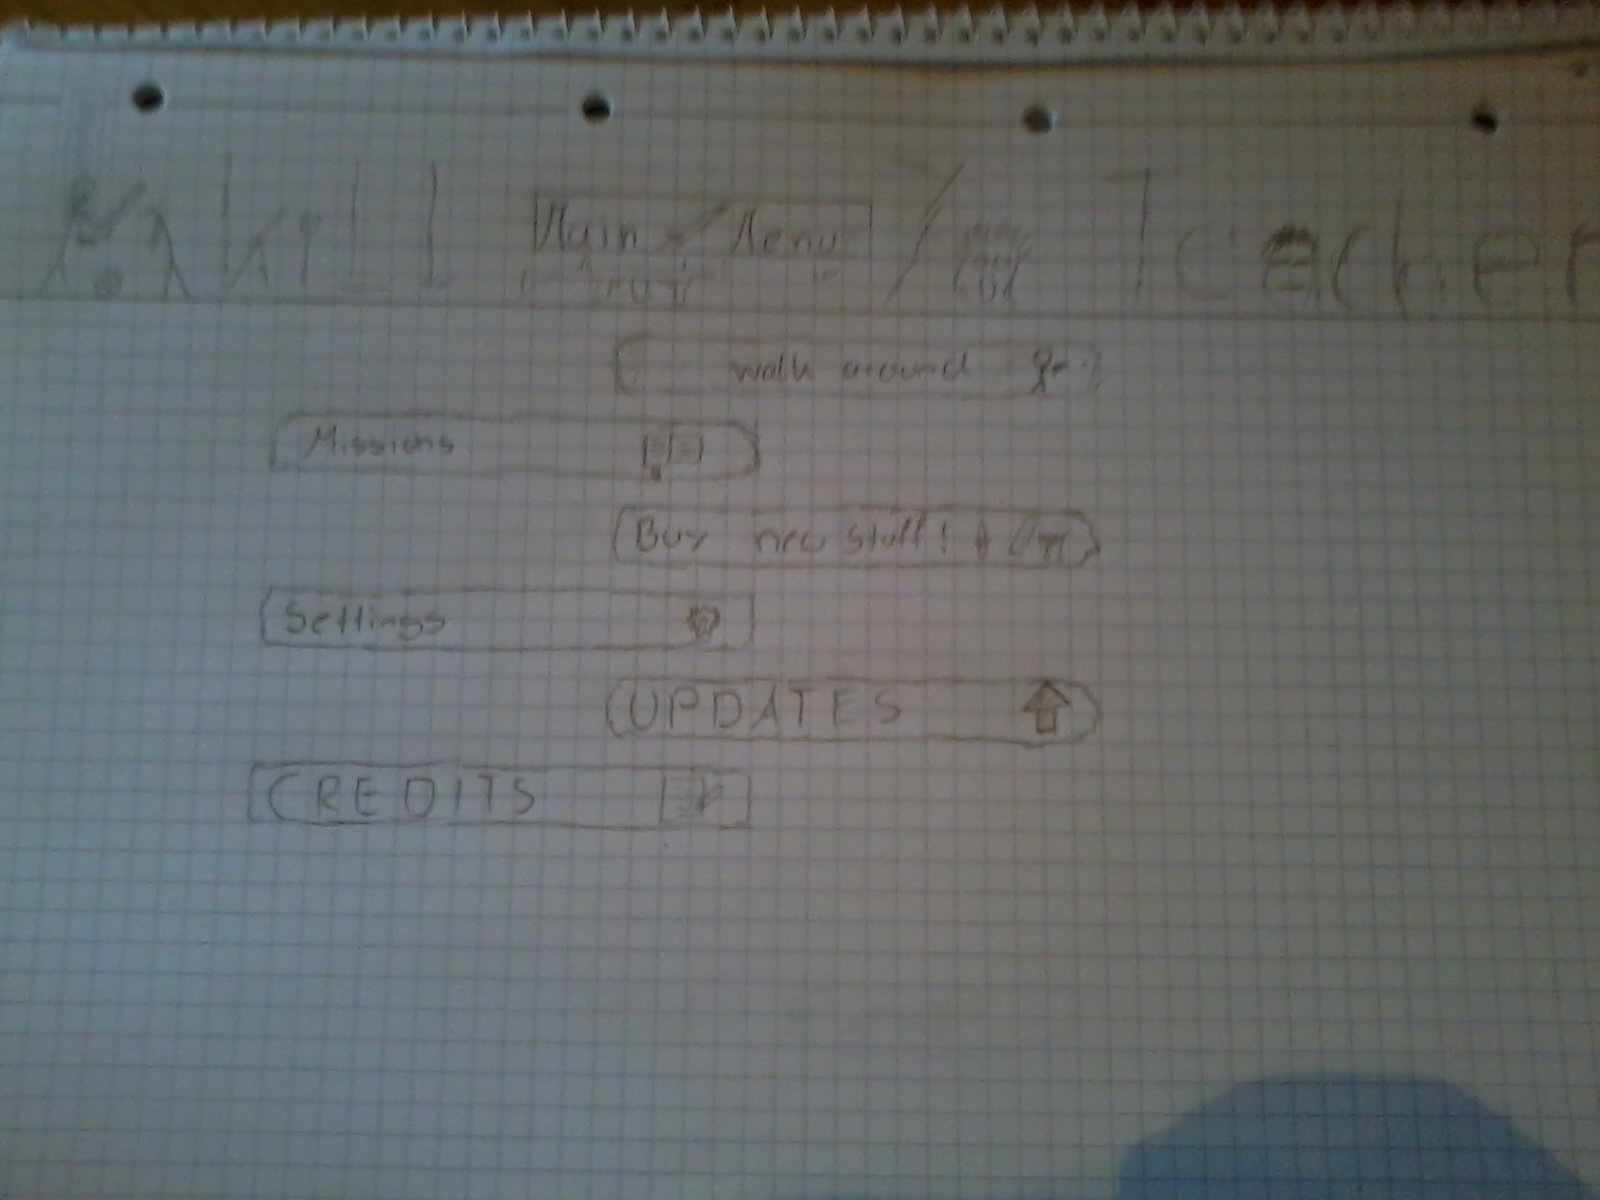 Kill Main Menu Teacher
walk around
Missions
Buy new stuff!
Settings
UPDATES
CREDITS